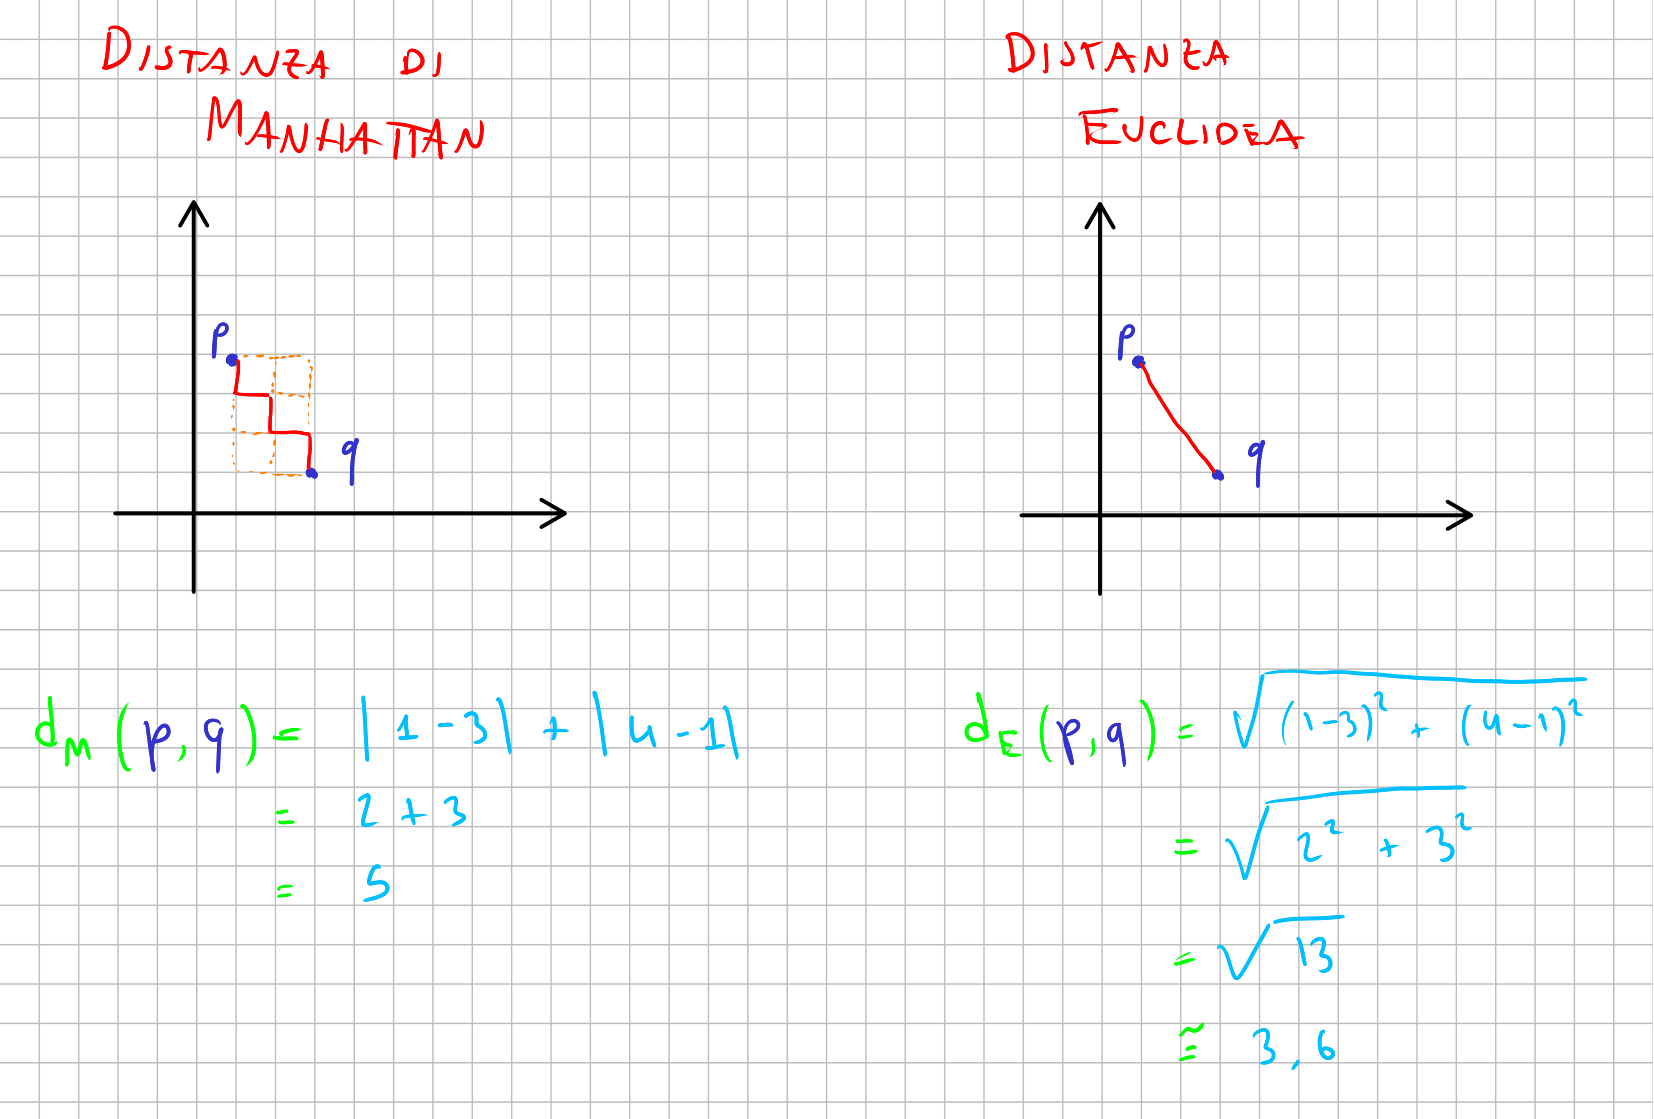 DISTANZA DI
MANHATTAN
p
q
d_M (p, q) = |1 - 3| + |4 - 1|
= 2 + 3
= 5
DISTANZA
EUCLIDEA
p
q
d_E (p, q) = √((1-3)² + (4-1)²)
= √(2² + 3²)
= √13
≅ 3,6